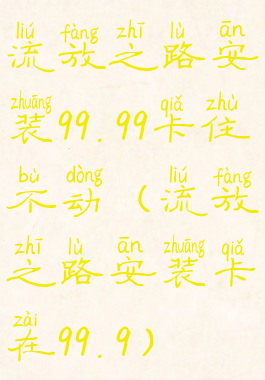 liú fàng zhī lù ān
流放之路安
zhuāng qiǎ zhù
装99.99卡住
bù dòng liú fàng
不动（流放
zhī lù ān zhuāng qiǎ
之路安装卡
zài
在99.9）